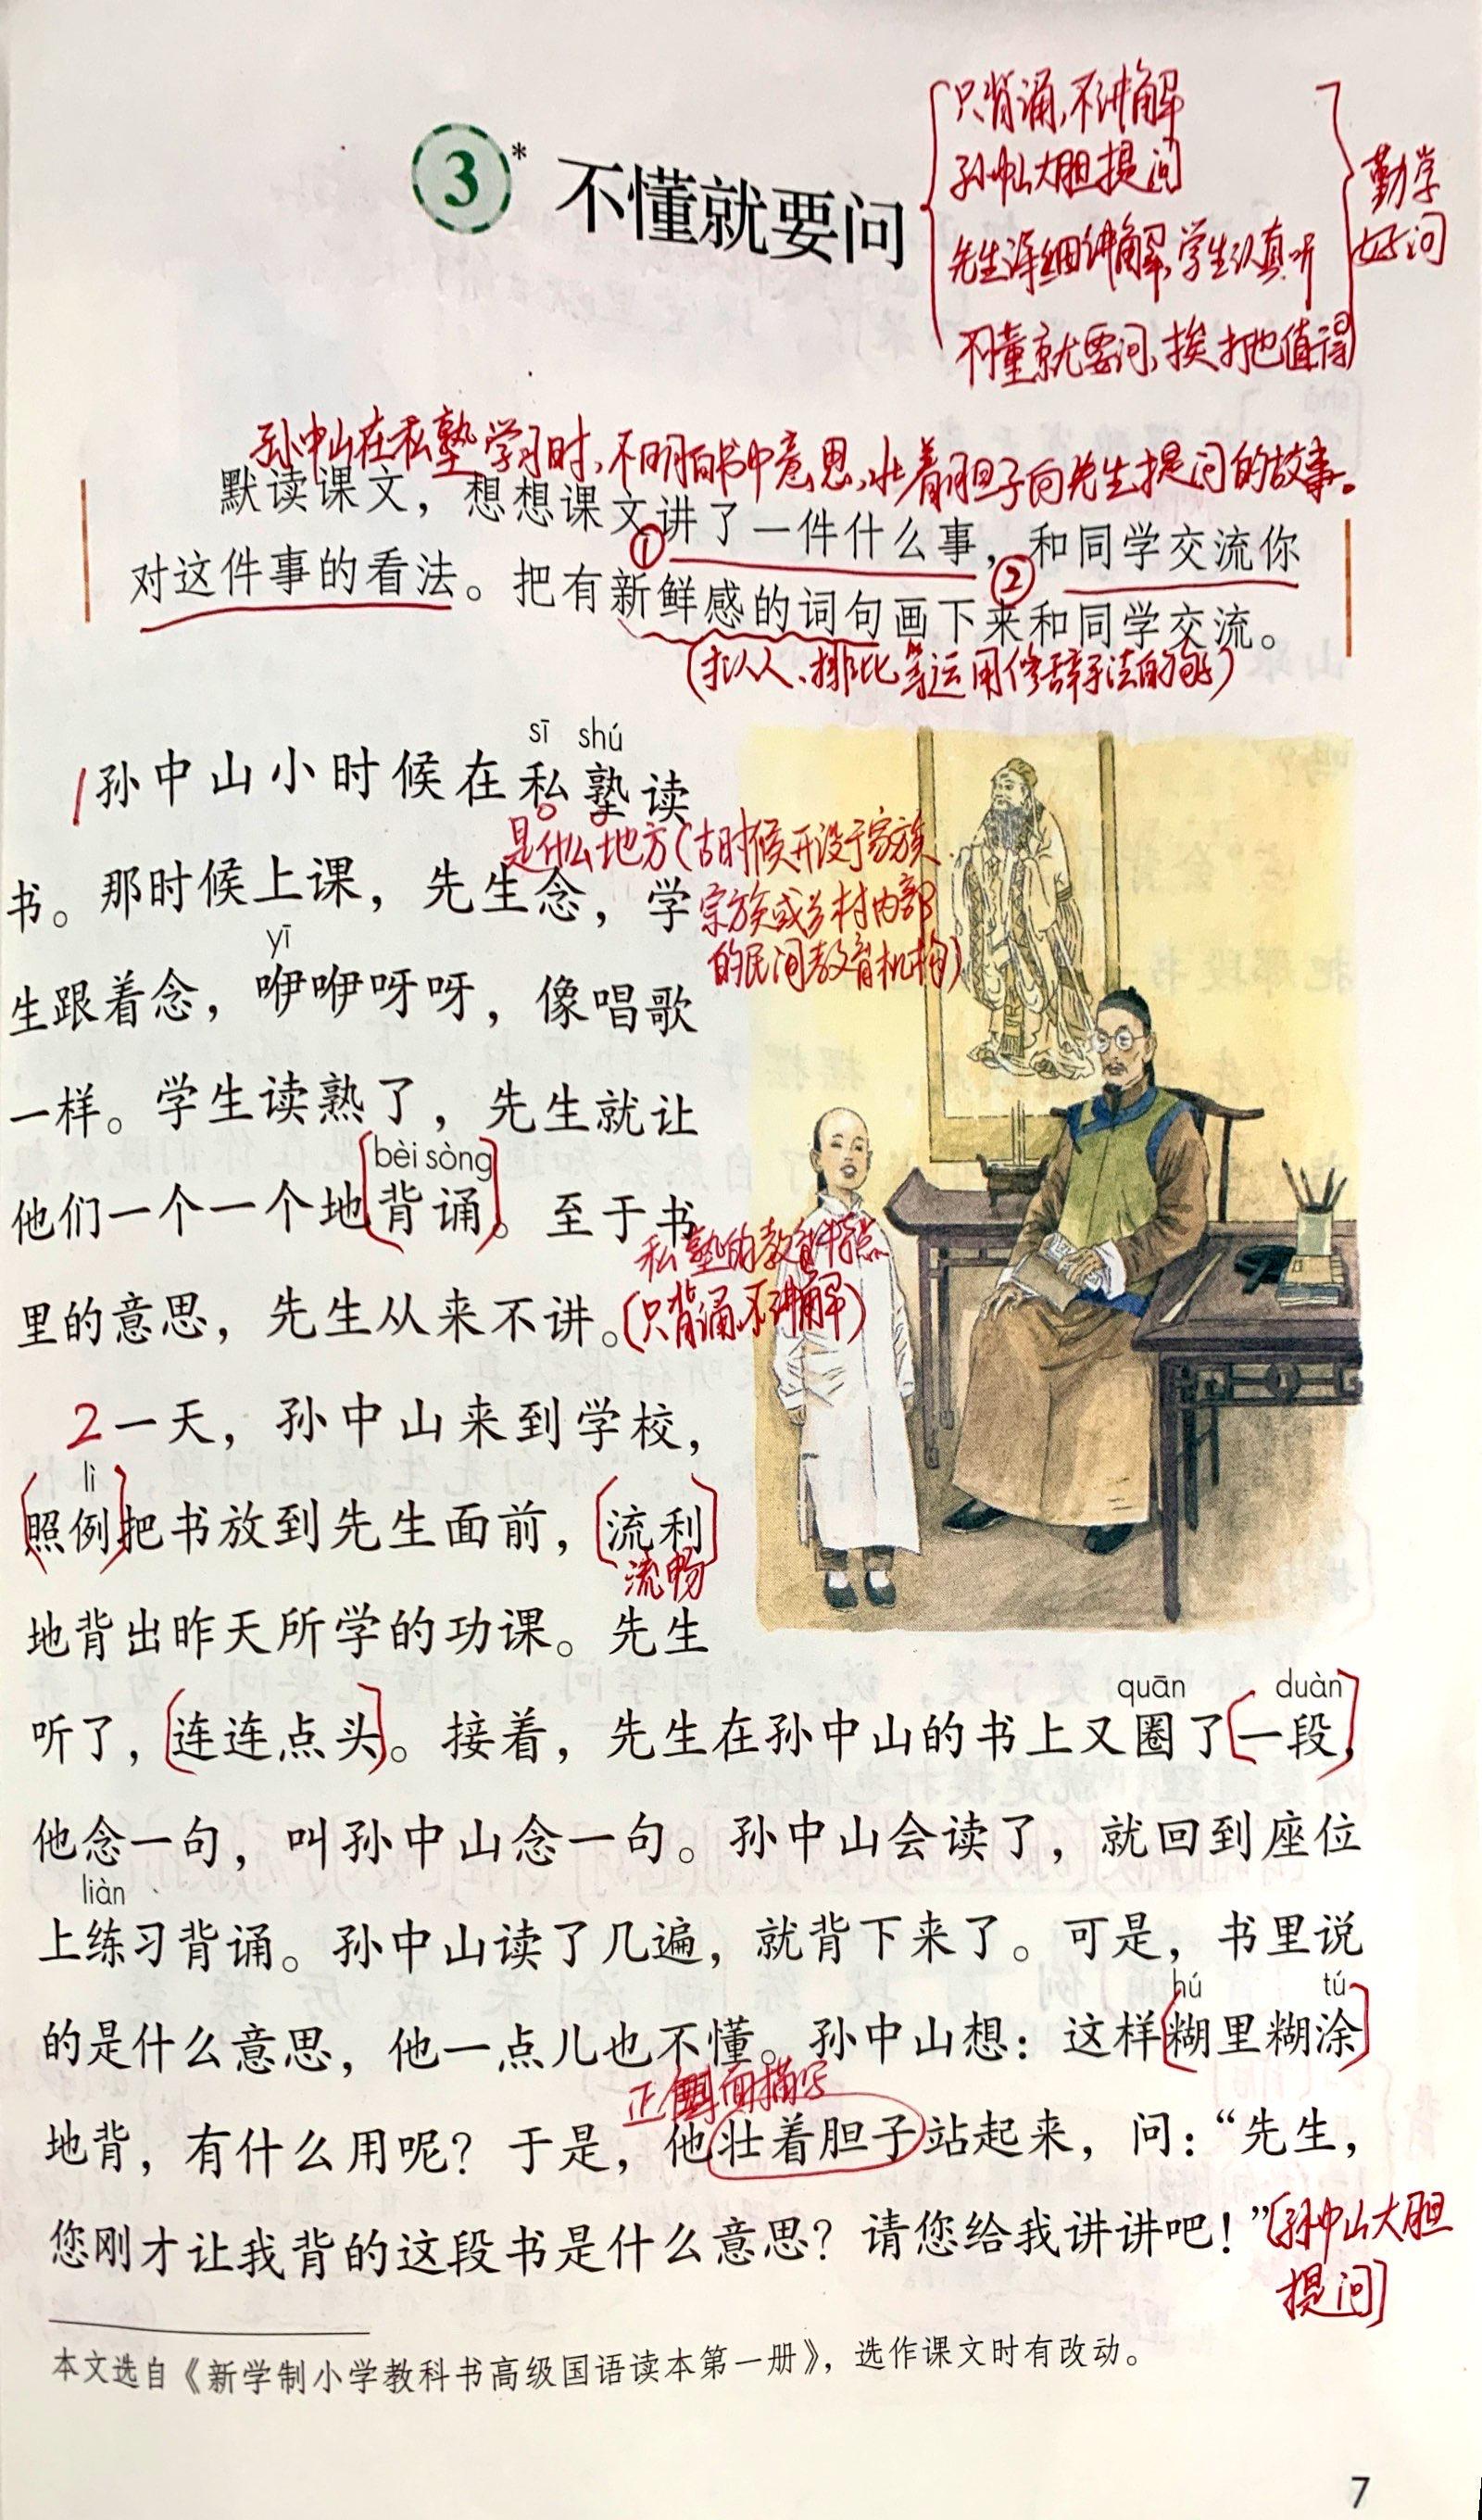 只背诵,不讲解
孙中山大胆提问
先生详细讲解,学生认真听
不懂就要问,挨打也值得
勤学
好问
3* 不懂就要问
孙中山在私塾学习时,不明白书中意思,壮着胆子向先生提问的故事。
默读课文，想想课文讲了一件什么事，和同学交流你
① ②
对这件事的看法。把有新鲜感的词句画下来和同学交流。
(拟人、排比等运用修辞手法的句子)
sī shú
1孙中山小时候在私塾读
是什么地方(古时候开设于家族、
宗族或乡村内部
的民间教育机构)
书。那时候上课，先生念，学
yī
生跟着念，咿咿呀呀，像唱歌
一样。学生读熟了，先生就让
bèi sòng
他们一个一个地[背诵]。至于书
私塾的教育特点
里的意思，先生从来不讲。(只背诵,不讲解)
2一天，孙中山来到学校，
lì
[照例]把书放到先生面前，[流利]
流畅
地背出昨天所学的功课。先生
quān duàn
听了，[连连点头]。接着，先生在孙中山的书上又圈了[一段]，
他念一句，叫孙中山念一句。孙中山会读了，就回到座位
liàn
上练习背诵。孙中山读了几遍，就背下来了。可是，书里说
hú tú
的是什么意思，他一点儿也不懂。孙中山想：这样[糊里糊涂]
正面描写
地背，有什么用呢？于是，他壮着胆子站起来，问：“先生，
您刚才让我背的这段书是什么意思？请您给我讲讲吧！”[孙中山大胆
提问]
本文选自《新学制小学教科书高级国语读本第一册》，选作课文时有改动。
7